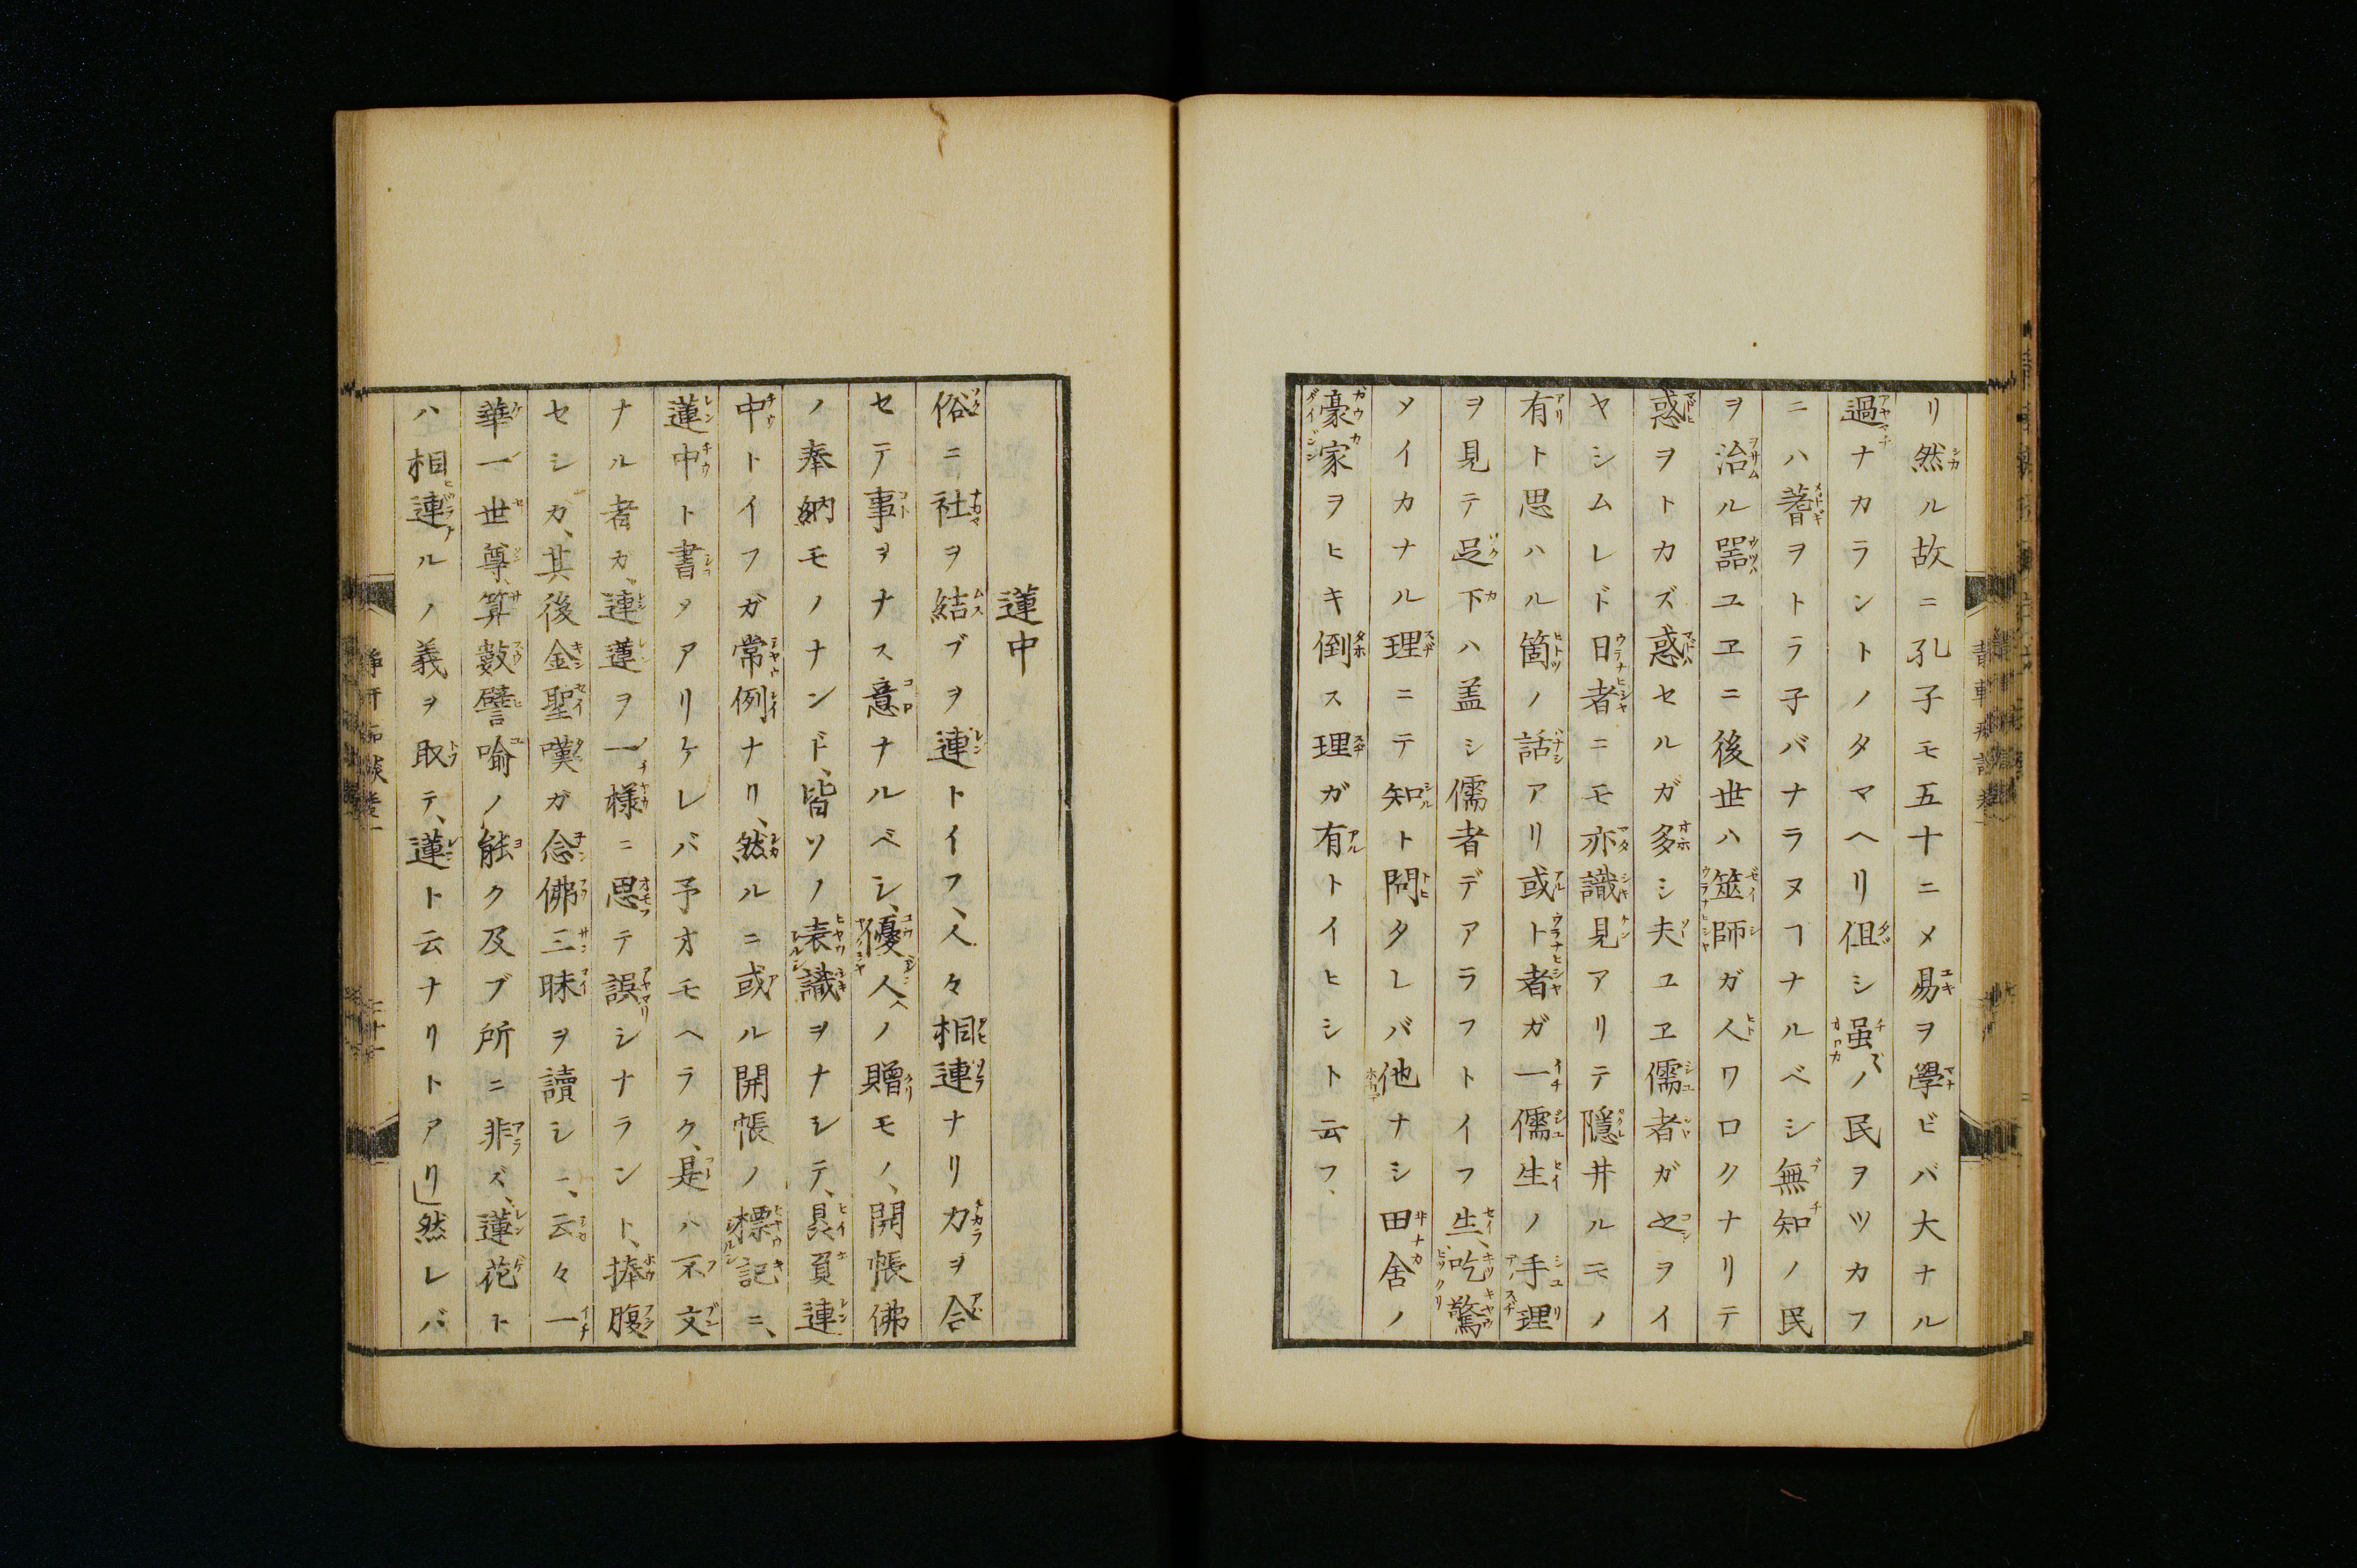 リ然ル故ニ孔子モ五十ニメ易ヲ學ビバ大ナル
過ナカラントノタマヘリ但シ虽ノ民ヲツカフ
ニハ蓍ヲトラ子バナラヌヿナルベシ無知ノ民
ヲ治ル器ユヱニ後世ハ筮師ガ人ワロクナリテ
惑ヲトカズ惑セルガ多シ夫ユヱ儒者ガ之ヲイ
ヤシムレド日者ニモ亦識見アリテ隱井ルモノ
有ト思ハル箇ノ話アリ或ト者ガ一儒生ノ手理
ヲ見テ足下ハ盖シ儒者デアラフトイフ生、吃驚
メイカナル理ニテ知ト問タレバ他ナシ田舎ノ
豪家ヲヒキ倒ス理ガ有トイヒシト云フ、
蓮中
俗ニ社ヲ結ブヲ連トイフ、人々相連ナリカヲ合
セテ事ヲナス意ナルベシ、優人ノ贈モノ、開帳佛
ノ奉納モノナンド、皆ソノ表識ヲナシテ、贔負連
中トイフガ常例ナリ、然ルニ或ル開帳ノ標記ニ、
蓮中ト書タアリケレバ予オモヘラク、是ハ不文
ナル者ガ、連蓮ヲ一樣ニ思テ誤シナラント、捧腹
セシガ、其後金聖嘆ガ念佛三昧ヲ讀シニ、云々一
華一世尊、算數譬喩ノ能ク及ブ所ニ非ズ、蓮花ト
ハ相連ルノ義ヲ取テ、蓮ト云ナリトアリ」然レバ